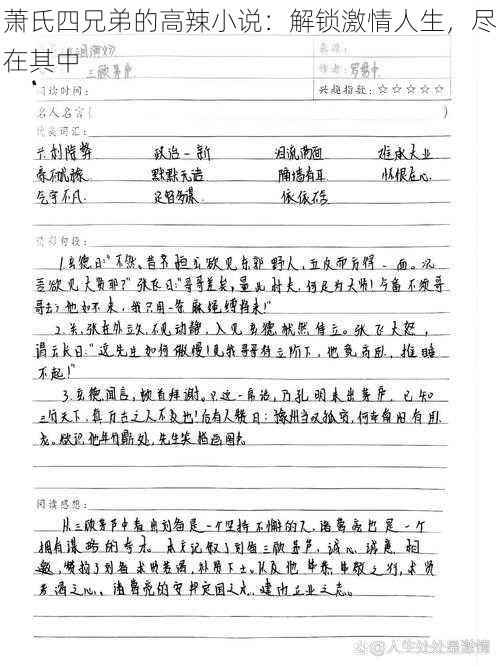 萧氏四兄弟的高辣小说：解锁激情人生，尽
在其中
来源：
三顾茅庐 作者：罗贯中
阅读时间： 兴趣指数：☆☆☆☆☆
名人名言( )
优美词汇：
政治一新 泪流两面 难成大业
默默无语 隔墙有耳 怀恨在心
气宇不凡 足智多谋
精彩句段：
1.玄德曰："不然，昔齐桓公欲见东郭野人，五反而方得一面。况
吾欲见大贤耶？"张飞曰："哥哥差矣，量此村夫，何足为大贤！今番不须哥
哥去；他如不来，我只用一条麻绳缚将来！"
2.关、张在外立久，不见动静，入见玄德犹然侍立。张飞大怒，
谓云长曰："这先生如何傲慢！见我哥哥侍立阶下，他竟高卧，推睡
不起！"
3.玄德闻言，顿首拜谢。只这一席话，乃孔明未出茅庐，已知
三分天下，真万古之人不及也！后有人赞曰：豫州当叹孤穷，何幸南阳有
龙。欲识他年分鼎处，先生笑指画图
阅读感想：
从三顾茅庐中看出刘备是一个坚持不懈的人，诸葛亮也是一个
拥有谋略的 本文记叙了刘备三顾茅庐，诚心，诚意，
刘备求贤若渴，礼贤下士。 求贤
若渴之心， 诸葛亮的安邦定国之 ，建功立业之志。
@人生处处是激情